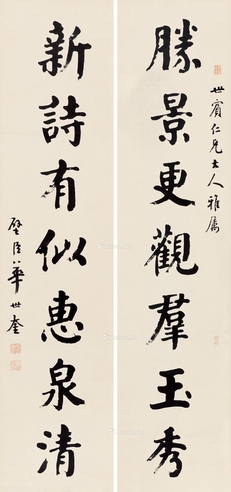 勝景更觀羣玉秀
世賓仁兄大人雅属
新詩有似惠泉清
璧臣華世奎